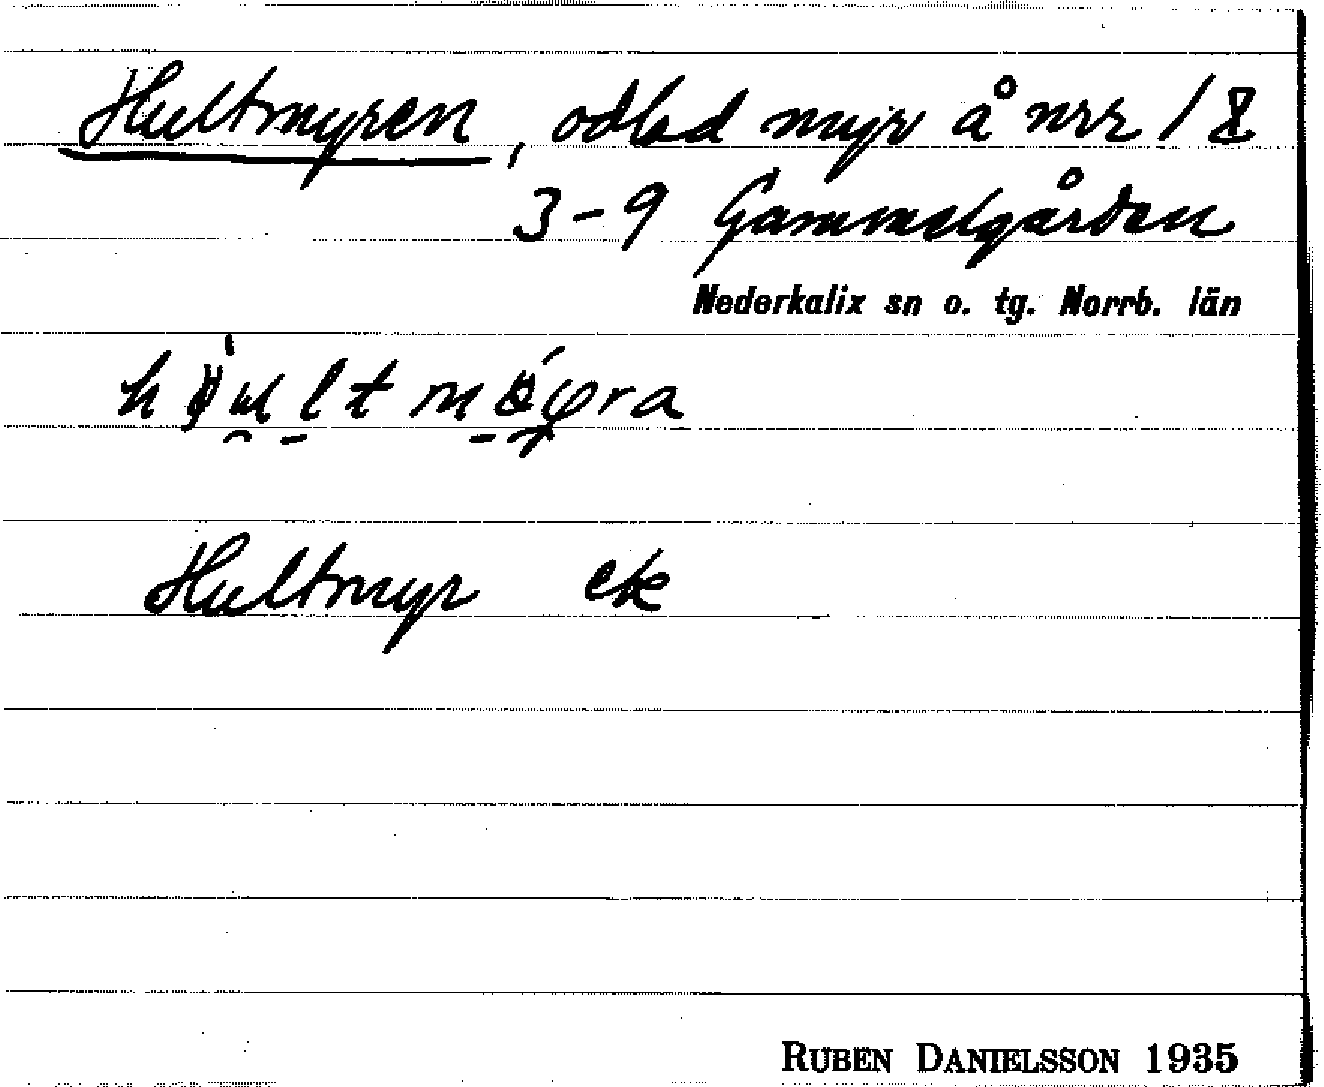 Hultmyren, odlad myr å nrr 1 &
3-9 Gammelgården
Nederkalix sn o. tg. Norrb. län
Hultmyr ek
RUBEN DANIELSSON 1935